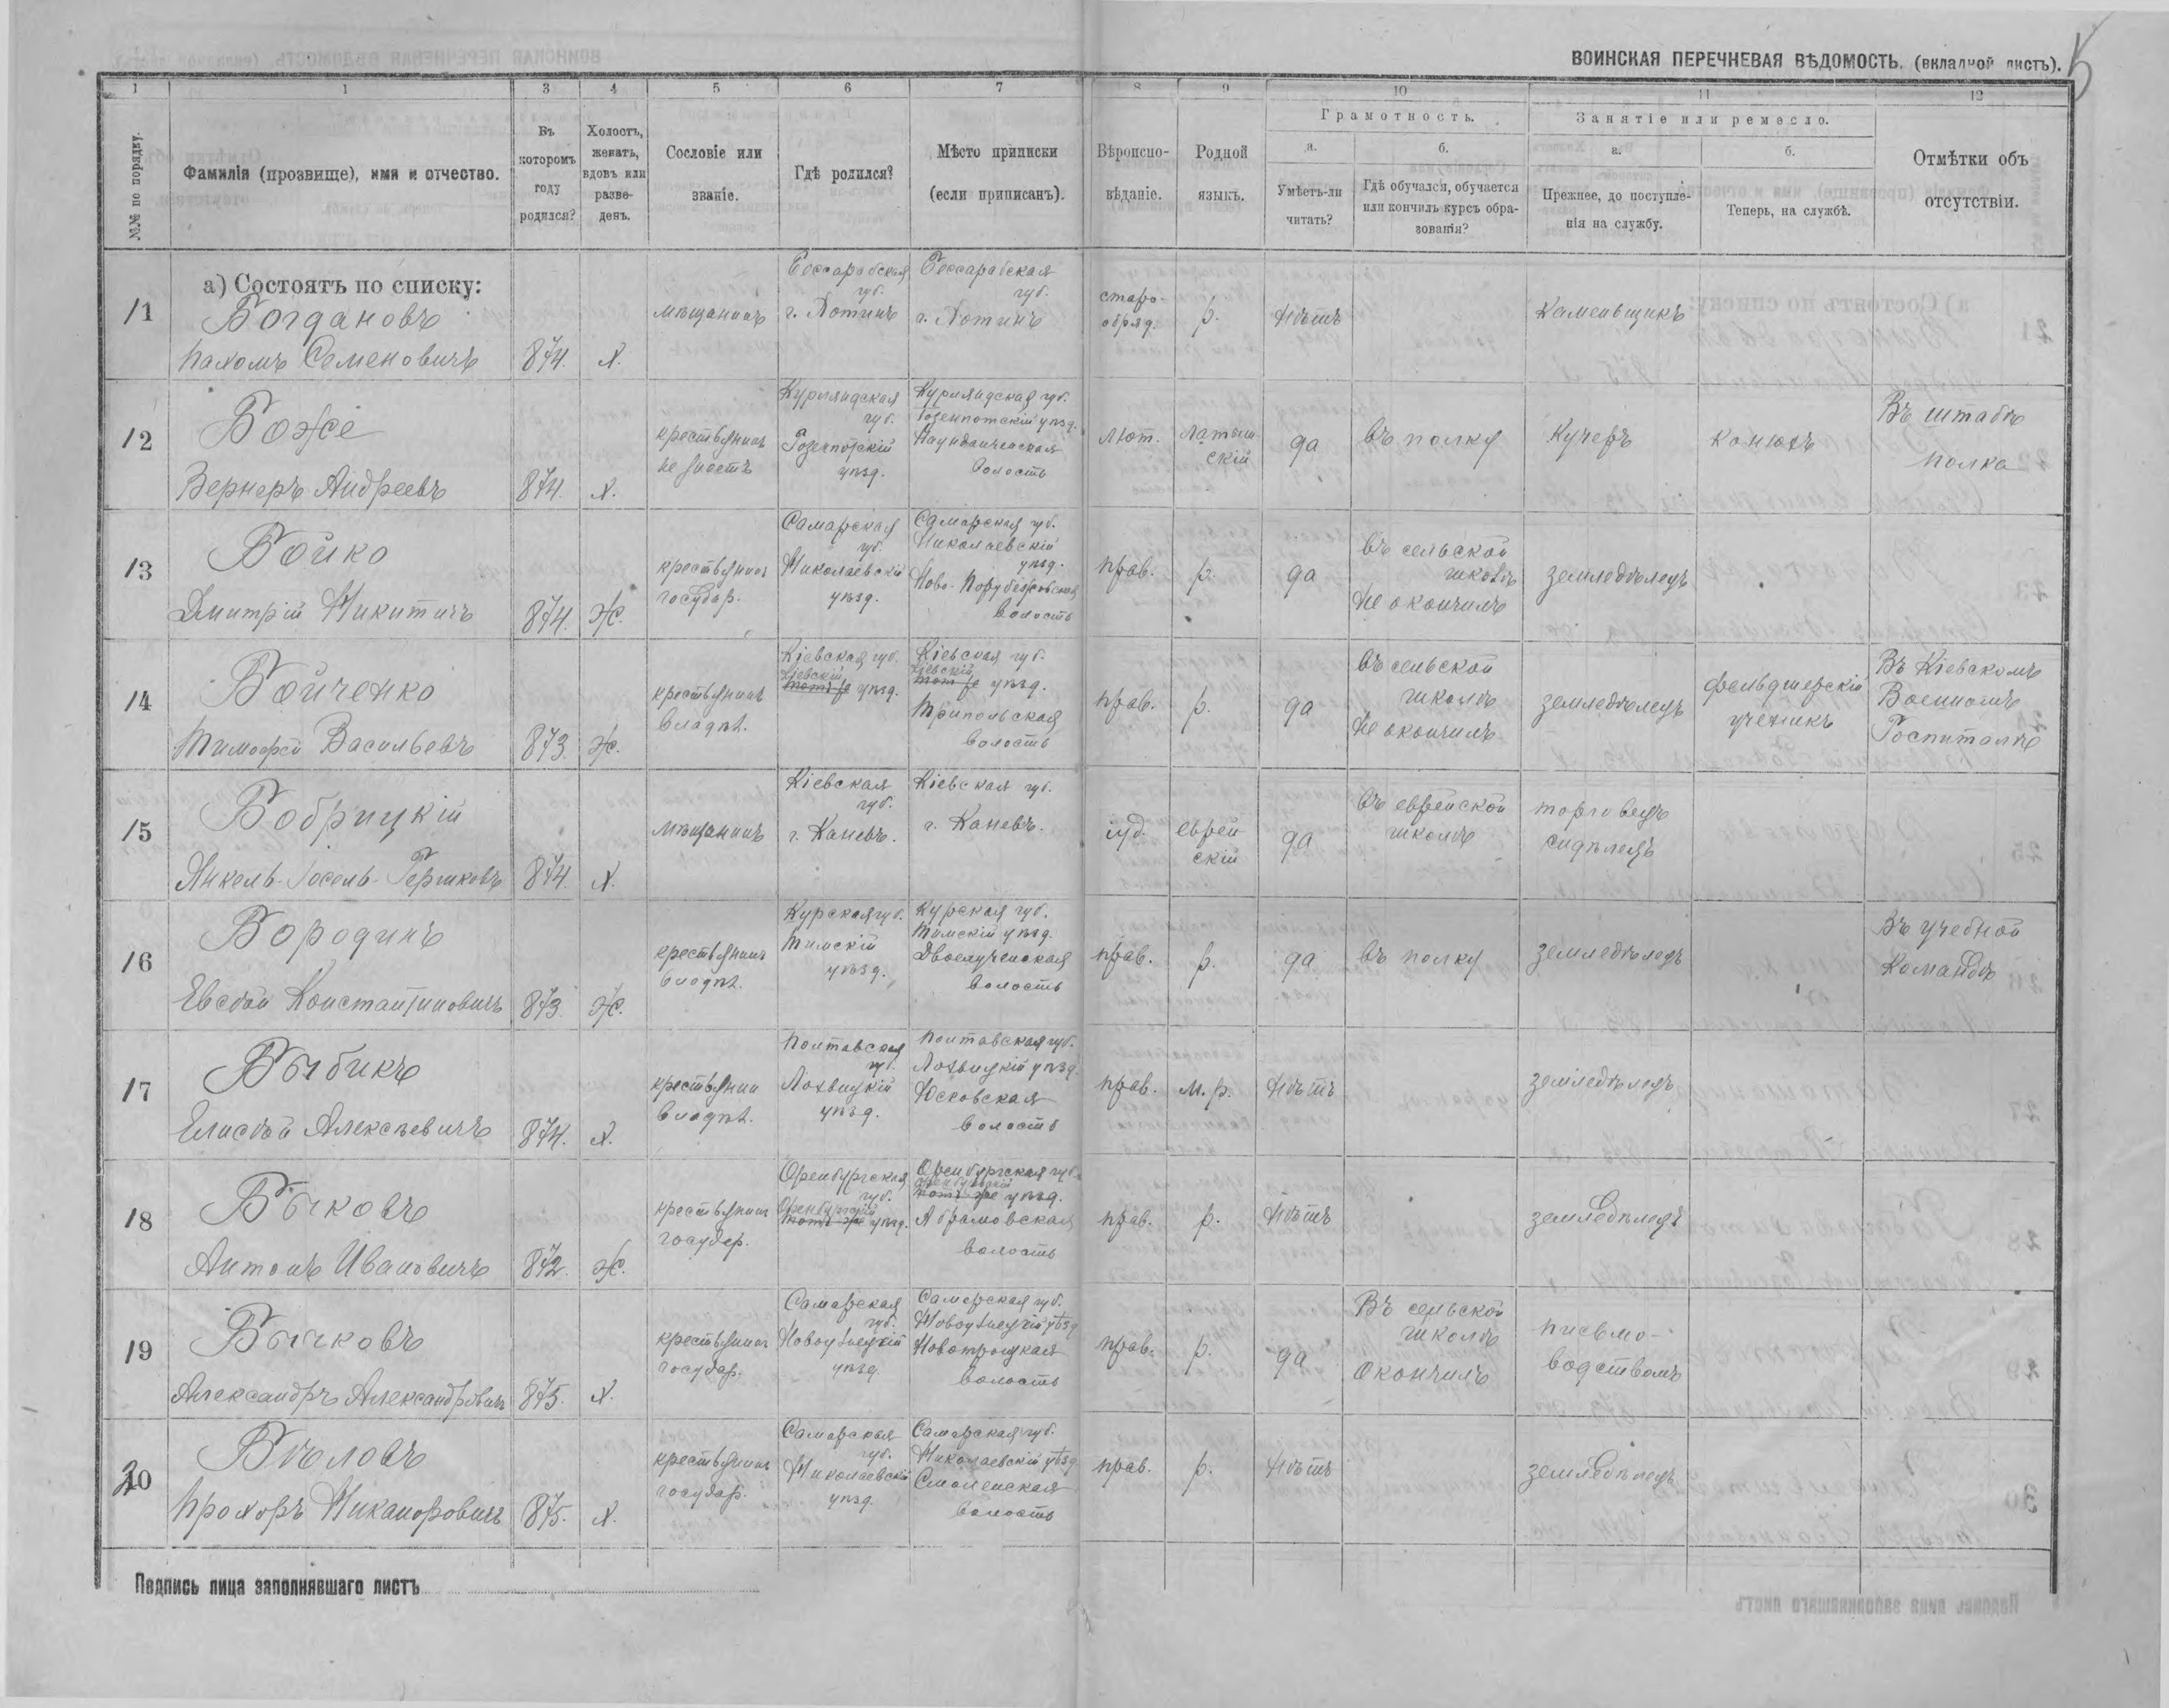 ВОИНСКАЯ ПЕРЕЧНЕВАЯ ВѢДОМОСТЬ. (вкладной листъ).
5
1 1 3 4 5 6 7 8 9 10 11 12
№№ по порядку.
Фамилія (прозвище), имя и отчество.
Въ котором‌ъ году родился?
Холостъ, женатъ, вдовъ или разве-денъ.
Сословіе или званіе.
Гдѣ родился?
Мѣсто приписки (если приписанъ).
Вѣроиспо-вѣданіе.
Родной языкъ.
Грамотность.
а. Умѣетъ-ли читать?
б. Гдѣ обучался, обучается или кончилъ курсъ обра-зованія?
Занятіе или ремесло.
а. Прежнее, до поступле-нія на службу.
б. Теперь, на службѣ.
Отмѣтки объ отсутствіи.
а) Состоятъ по списку:
11 Богдановъ Пахомъ Семеновичъ 874. х. мѣщанинъ Бессарабская губ. г. Хотинъ Бессарабская губ. г. Хотинъ старо-обряд. р. нѣтъ каменьщикъ
12 Божé Вернеръ Андреевъ 874. х. крестьянинъ Курляндская губ. Газенпотскій уѣзд. Курляндская губ. Газенпотскій уѣзд. волость лют. латыш скій да въ полку кучеръ конюхъ Въ штабѣ полка
13 Бойко Дмитрій Никитичъ 874. ж. крестьянинъ государ. Самарская губ. Николаевскій уѣзд. Самарская губ. Николаевскій уѣзд. Ново-Порубежская волость прав. р. да въ сельской школѣ не окончилъ земледѣлецъ
14 Бойченко Тимофей Васильевъ 873. ж. крестьянинъ владѣл. Кіевская губ. Кіевскій уѣзд. Кіевская губ. Кіевскій уѣзд. Трипольская волость прав. р. да въ сельской школѣ не окончилъ земледѣлецъ фельдшерскій ученикъ Въ Кіевскомъ Военномъ Госпиталѣ
15 Бобрицкій Янкель-Іосель-Гершковъ 874. х. мѣщанинъ Кіевская губ. г. Каневъ. Кіевская губ. г. Каневъ. іуд. еврей скій да въ еврейской школѣ торговецъ сидѣлецъ
16 Бородинъ Евсѣй Константиновичъ 873. ж. крестьянинъ владѣл. Курская губ. Тимскій уѣзд. Курская губ. Тимскій уѣзд. Двоелученская волость прав. р. да въ полку земледѣлецъ Въ учебной командѣ
17 Быбикъ Елисѣй Алексѣевичъ 874. х. крестьянин владѣл. Полтавская губ. Лохвицкій уѣзд. Полтавская губ. Лохвицкій уѣзд. Юсковская волость прав. м. р. нѣтъ земледѣлецъ
18 Бычковъ Антонъ Ивановичъ 872. ж. крестьянинъ государ. Оренбургская губ. Оренбургскій уѣзд. Оренбургская губ. Оренбургскій уѣзд. Абрамовская волость прав. р. нѣтъ земледѣлецъ
19 Бычковъ Александръ Александровичъ 875. х. крестьянинъ государ. Самарская губ. Новоузенскій уѣзд. Самарская губ. Новоузенскій уѣзд. Новотроицкая волость прав. р. да Въ сельской школѣ окончилъ письмо-водствомъ
20 Бѣловъ Прохоръ Никаноровичъ 875. х. крестьянинъ государ. Самарская губ. Николаевскій уѣзд. Самарская губ. Николаевскій уѣзд. Смоленская волость прав. р. нѣтъ земледѣлецъ
Подпись лица заполнявшаго листъ